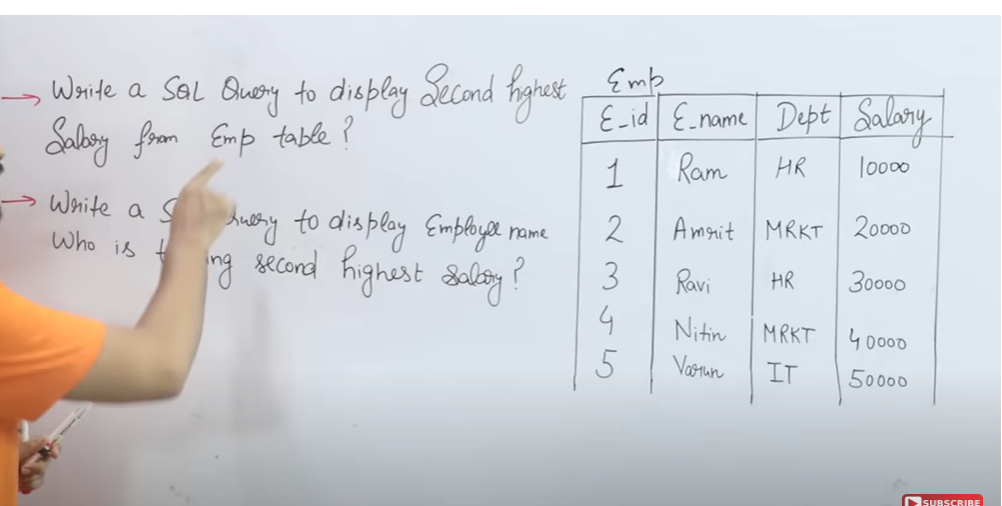 → Write a SQL Query to display Second highest
Salary from Emp table?
→ Write a to display Employee name
Who is second highest salary?
Emp
E_id E_name Dept Salary
1 Ram HR 10000
2 Amrit MRKT 20000
3 Ravi HR 30000
4 Nitin MRKT 40000
5 Varun IT 50000
SUBSCRIBE